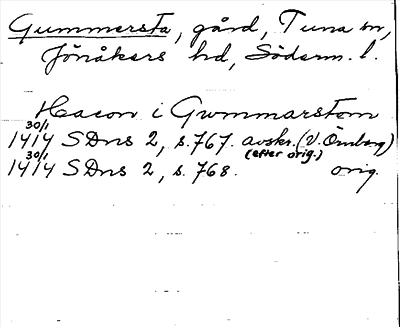 Gummersta, gård, Tuna sn,
Jönåkers hd, Söderm. l.
Hacon i Gwmmarstom
30/1
1414 SDns 2, s. 767. avskr. (V. Örnberg)
(efter orig.)
30/1
1414 SDns 2, s. 768. orig.